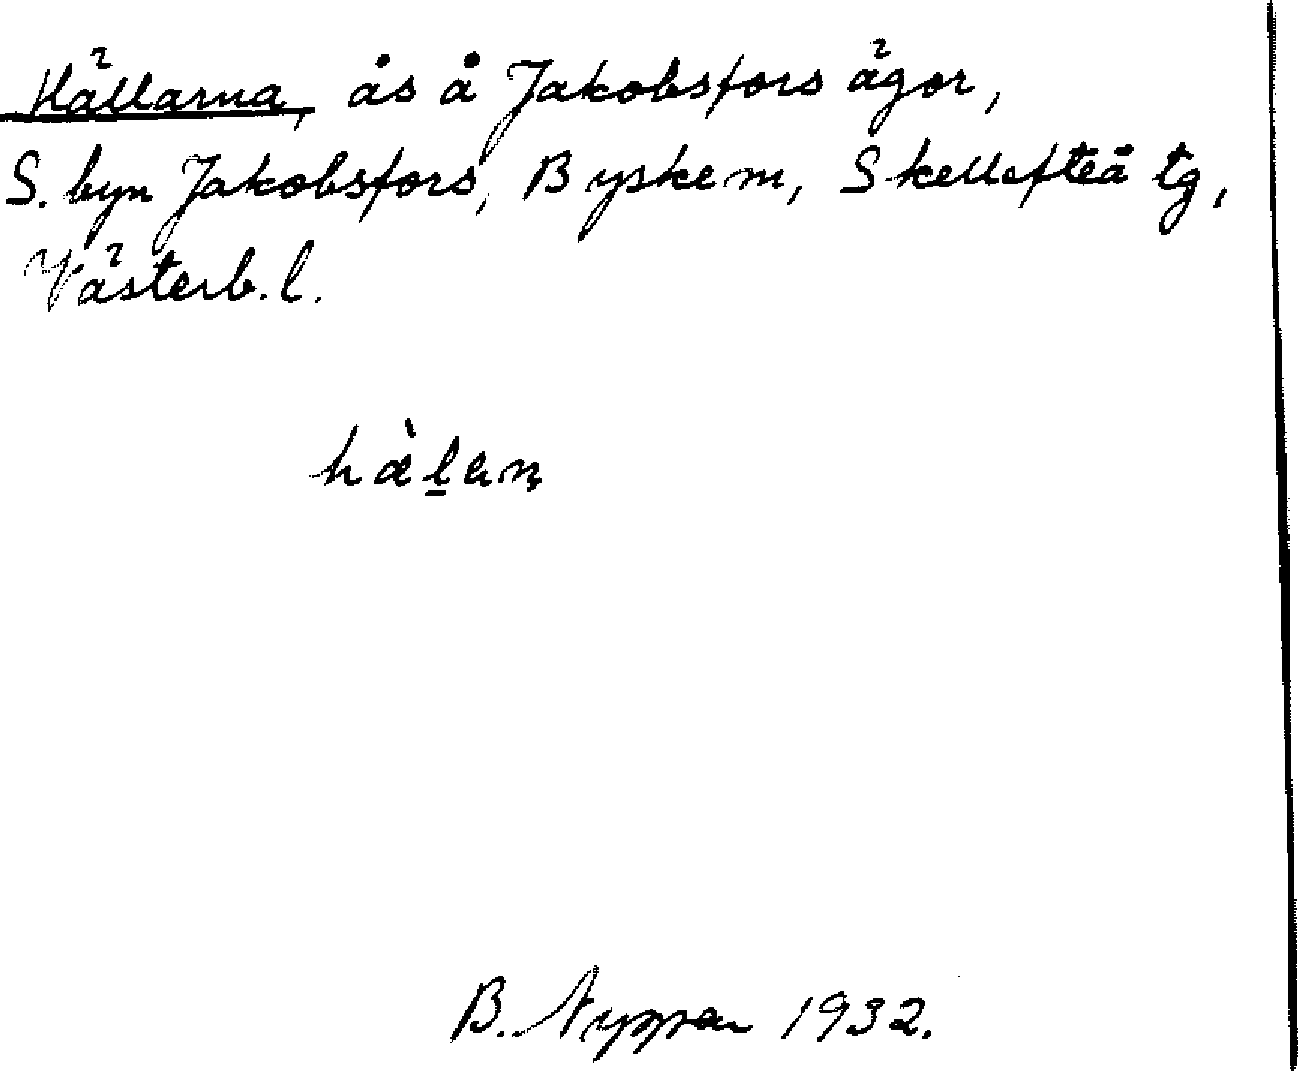 Hällarna, ås å Jakobsfors ägor,
S. byn Jakobsfors, Byske m, Skellefteå tg,
Västerb. l.
hæ̀l̠an̥
B. 1932.